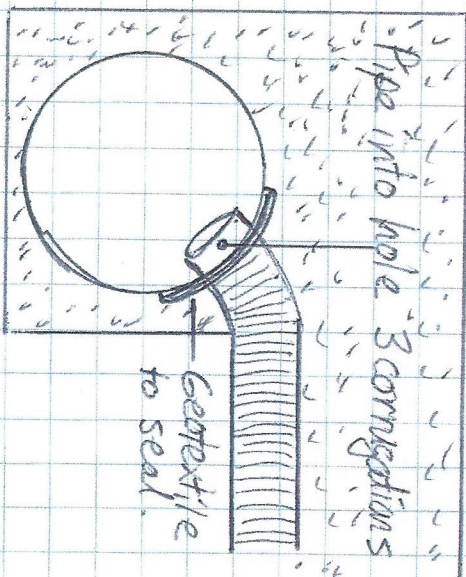 Pipe into hole 3 corrugations
Geotextile
to seal.